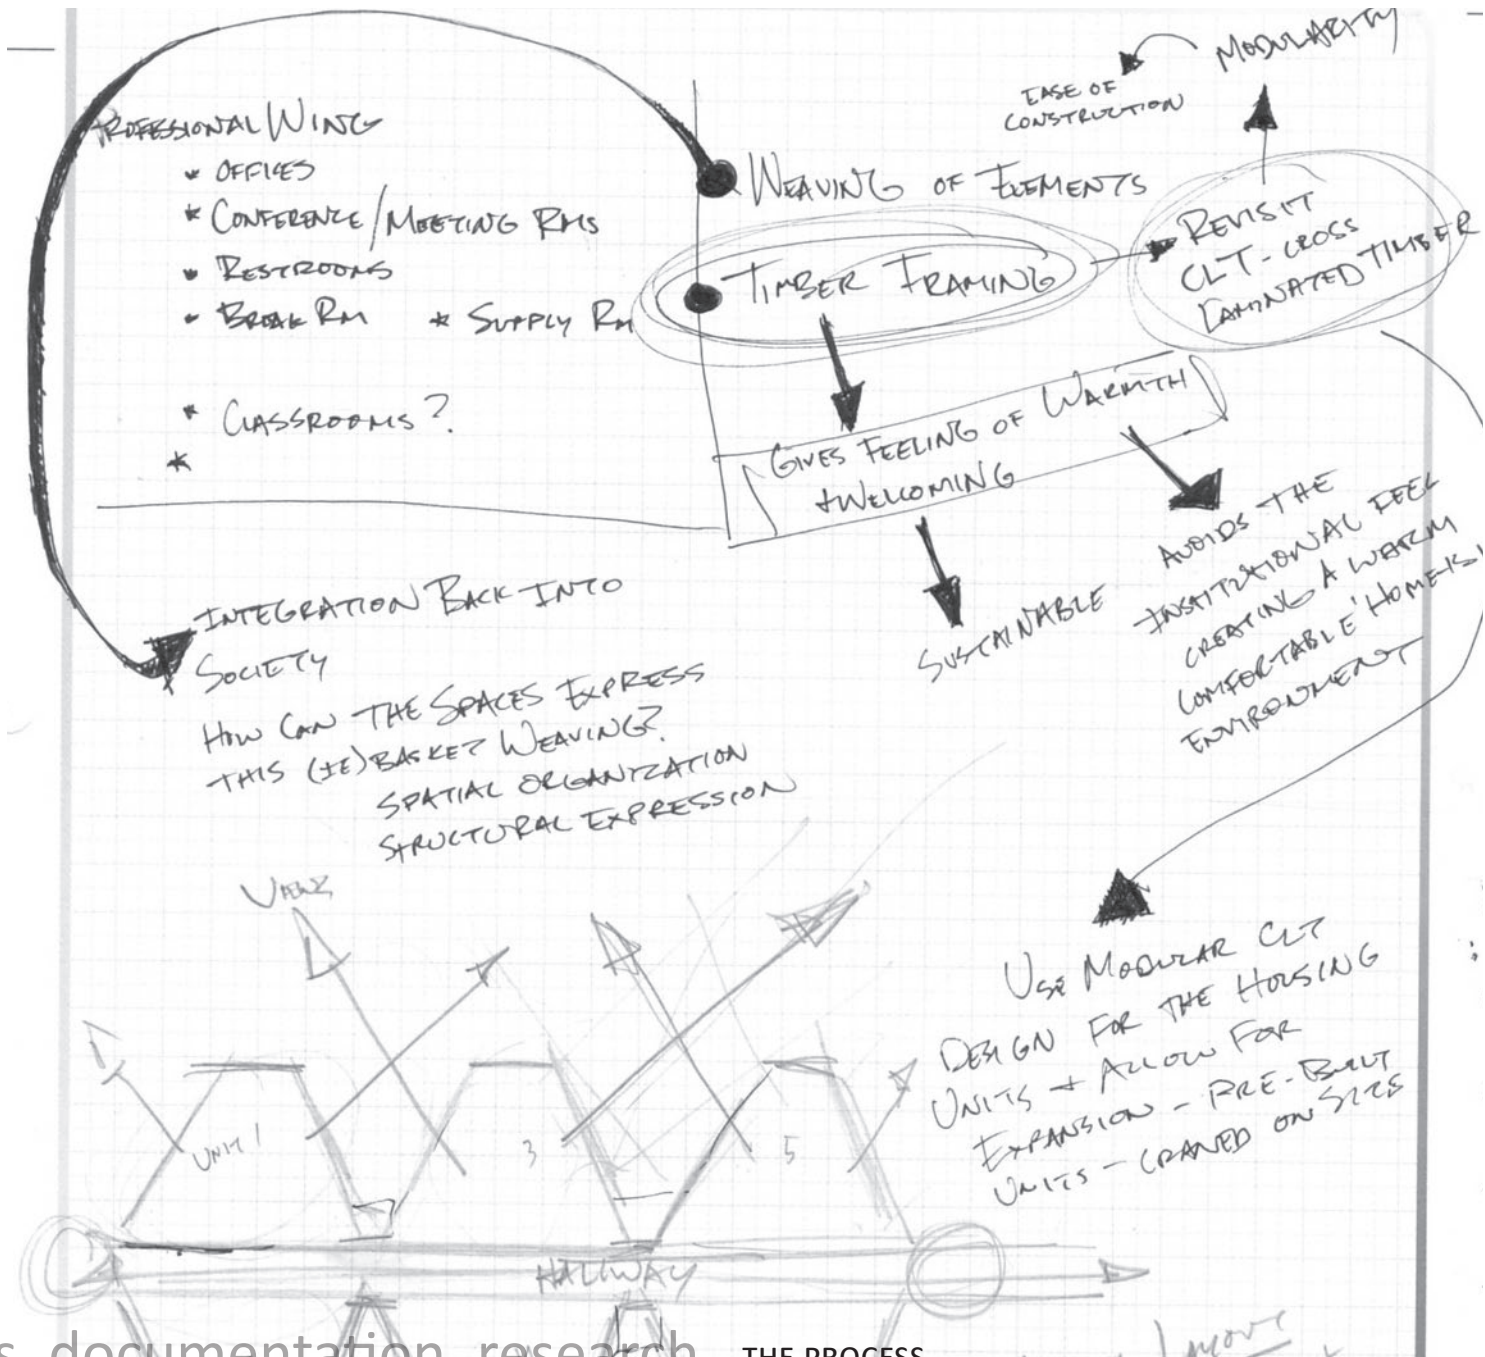 MODULARITY
EASE OF
CONSTRUCTION
PROFESSIONAL WING
* OFFICES
* CONFERENCE/MEETING RMS
* RESTROOMS
* BREAK RM * SUPPLY RM
* CLASSROOMS?
*
WEAVING OF ELEMENTS
TIMBER FRAMING
REVISIT
CLT - CROSS
LAMINATED TIMBER
GIVES FEELING OF WARMTH
+ WELCOMING
SUSTAINABLE
AVOIDS THE
INSTITUTIONAL FEEL
CREATING A WARM
COMFORTABLE
ENVIRONMENT
INTEGRATION BACK INTO
SOCIETY
HOW CAN THE SPACES EXPRESS
THIS (IE) BASKET WEAVING?
SPATIAL ORGANIZATION
STRUCTURAL EXPRESSION
VIEWS
USE MODULAR CLT
DESIGN FOR THE HOUSING
UNITS + ALLOW FOR
EXPANSION - PRE-BUILT
UNITS - CRANED ON SITE
UNIT 1
3
5
HALLWAY
s documentation research
THE PROCESS